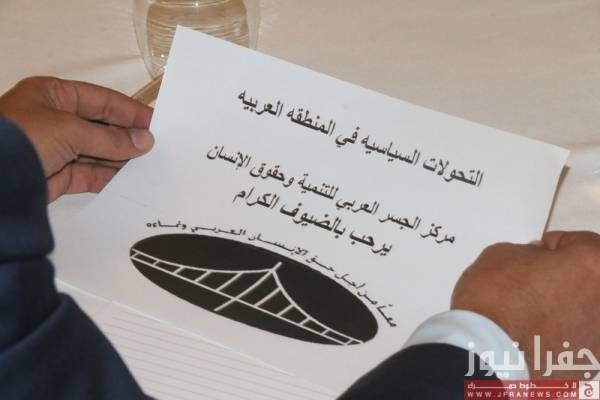 التحولات السياسيه في المنطقه العربيه
مركز الجسر العربي للتنمية وحقوق الإنسان
يرحب بالضيوف الكرام
معاً من أجل حق الإنسان العربي ونماءه
جفرا نيوز
لا خطوط حمراء
WWW.JFRANEWS.COM